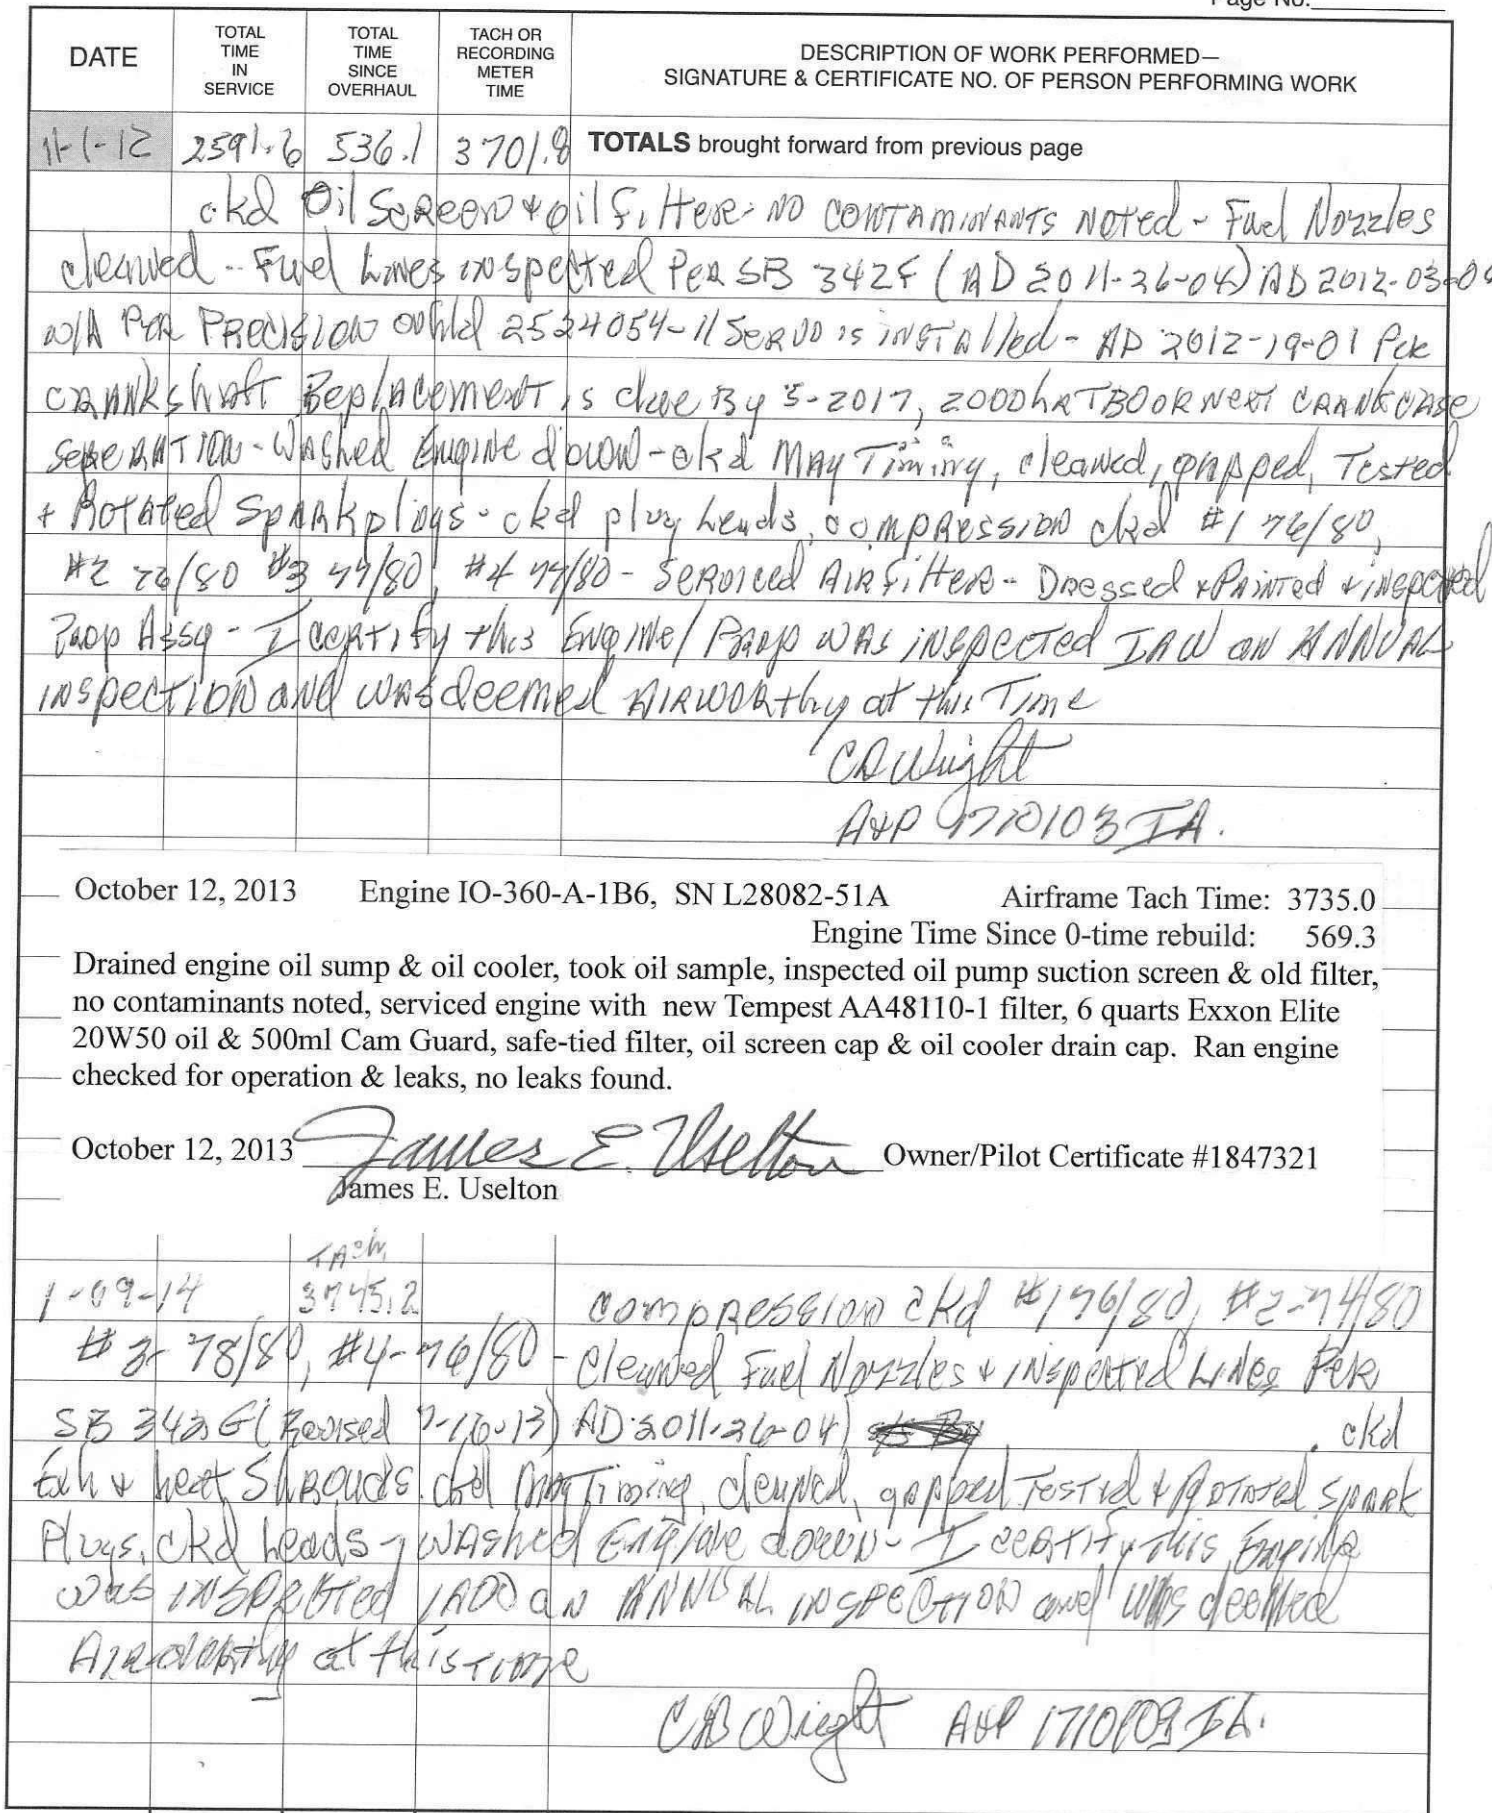 Page No.
DATE
TOTAL TIME IN SERVICE
TOTAL TIME SINCE OVERHAUL
TACH OR RECORDING METER TIME
DESCRIPTION OF WORK PERFORMED—
SIGNATURE & CERTIFICATE NO. OF PERSON PERFORMING WORK
11-1-12 2591.6 536.1 3701.8 TOTALS brought forward from previous page
ckd Oil Screen & oil filter - NO CONTAMINANTS NOTED - Fuel Nozzles
cleaned - Fuel Lines inspected Per SB 342F (AD 2011-26-04) AD 2012-03-
N/A Per PRECISION 2524054-11 Servo is iNSTAlled - AD 2012-19-01 Per
CRANKshaft Replacement is due By 5-2017, 2000hr TBO OR Next CRANKCASE
SepeRATION - Washed Engine down - ckd Mag Timing, cleaned, gapped, Tested
+ Rotated Sparkplugs - ckd plug Leads, compression ckd #1 76/80,
#2 /80 #3 77/80, #4 77/80 - Serviced AIR Filter - Dressed & Painted & inspected
Prop Assy - I certify this Engine/Prop was inspected IAW an ANNUAL
inspection and was deemed AIRWORthy at this Time
CD Wright
A&P 1710103 IA.
October 12, 2013 Engine IO-360-A-1B6, SN L28082-51A Airframe Tach Time: 3735.0
Engine Time Since 0-time rebuild: 569.3
Drained engine oil sump & oil cooler, took oil sample, inspected oil pump suction screen & old filter,
no contaminants noted, serviced engine with new Tempest AA48110-1 filter, 6 quarts Exxon Elite
20W50 oil & 500ml Cam Guard, safe-tied filter, oil screen cap & oil cooler drain cap. Ran engine
checked for operation & leaks, no leaks found.
October 12, 2013 James E. Uselton Owner/Pilot Certificate #1847321
James E. Uselton
TACH
1-09-14 3745.2 compression ckd #1 76/80, #2-74/80
#3- 78/80, #4-76/80 - Cleaned Fuel Nozzles & inspected Lines Per
SB 342G (Revised 7-16-13) AD 2011-26-04) ckd
Exh & heat Shrouds. ckd Mag Timing, cleaned, gapped Tested & Rotated spark
Plugs, ckd Leads - Washed Engine down - I certify this Engine
was inspected IAW an ANNUAL inspection and was deemed
Airworthy at this time
CD Wright A&P 1710103 IA.